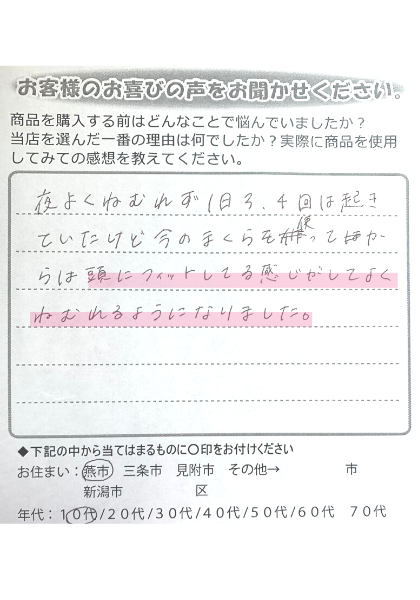 お客様のお喜びの声をお聞かせください。
商品を購入する前はどんなことで悩んでいましたか？
当店を選んだ一番の理由は何でしたか？実際に商品を使用
してみての感想を教えてください。
夜よくねむれず1日3、4回は起き
ていたけど今のまくらを使ってか
らは頭にフィットしてる感じがしてよく
ねむれるようになりました。
◆下記の中から当てはまるものに○印をお付けください
お住まい：燕市 三条市 見附市 その他→ 市
新潟市 区
年代：10代/20代/30代/40代/50代/60代 70代